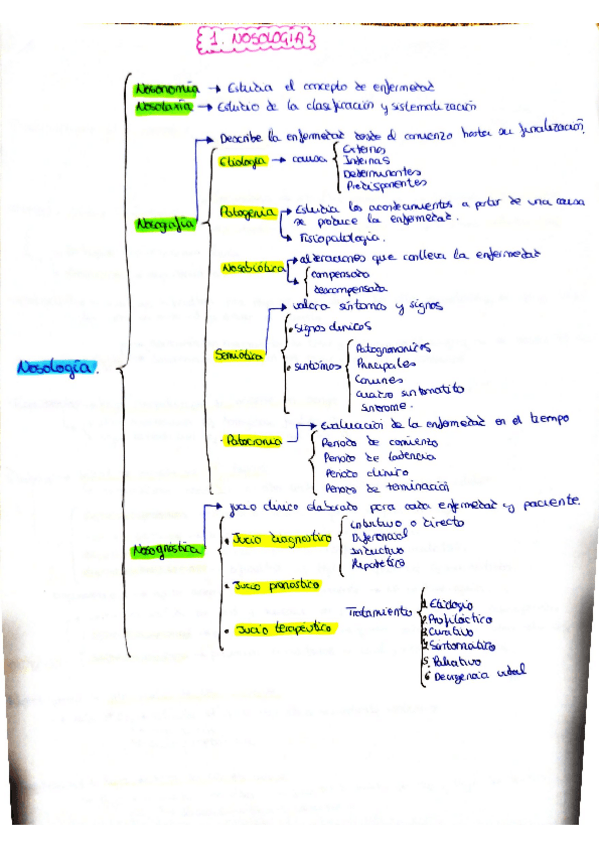 1. NOSOLOGÍA
Nosonomía → Estudia el concepto de enfermedad
Nosotaxia → Estudio de la clasificación y sistematización
Describe la enfermedad desde el comienzo hasta su finalización.
Etiología → causa
Externos
Internas
Determinantes
Predisponentes
Nosografía
Patogenia
Estudia los acontecimientos a partir de una causa
se produce la enfermedad.
Fisiopatología.
Nosobiótica
alteraciones que conlleva la enfermedad
compensada
descompensada
Semiótica
valora síntomas y signos
• signos clínicos
• síntomas
Patognomonicos
Principales
Comunes
cuadro sintomatico
síndrome.
Nosología.
Patocronia
evaluación de la enfermedad en el tiempo
Periodo de comienzo
Periodo de latencia
Periodo clínico
Periodo de terminación
Nosognóstica
juicio clínico elaborado para cada enfermedad y paciente.
• Juicio diagnóstico
intuitivo o directo
Diferencial
Inductivo
Hipotético
• Juicio pronóstico
• Juicio terapéutico
Tratamiento
1. Etiologio
2. Profiláctico
3. Curativo
4. Sintomatico
5. Paliativo
6 De urgencia vital